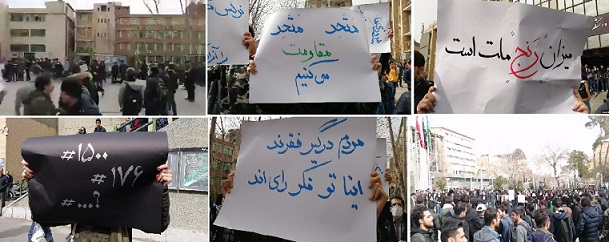 متحد متحد
مقاومت
می‌کنیم
میزان رنج ملت است
#۱۵۰۰
#۱۷۶
#...؟
مردم درگیر فقرند
اینا تو فکر رای اند